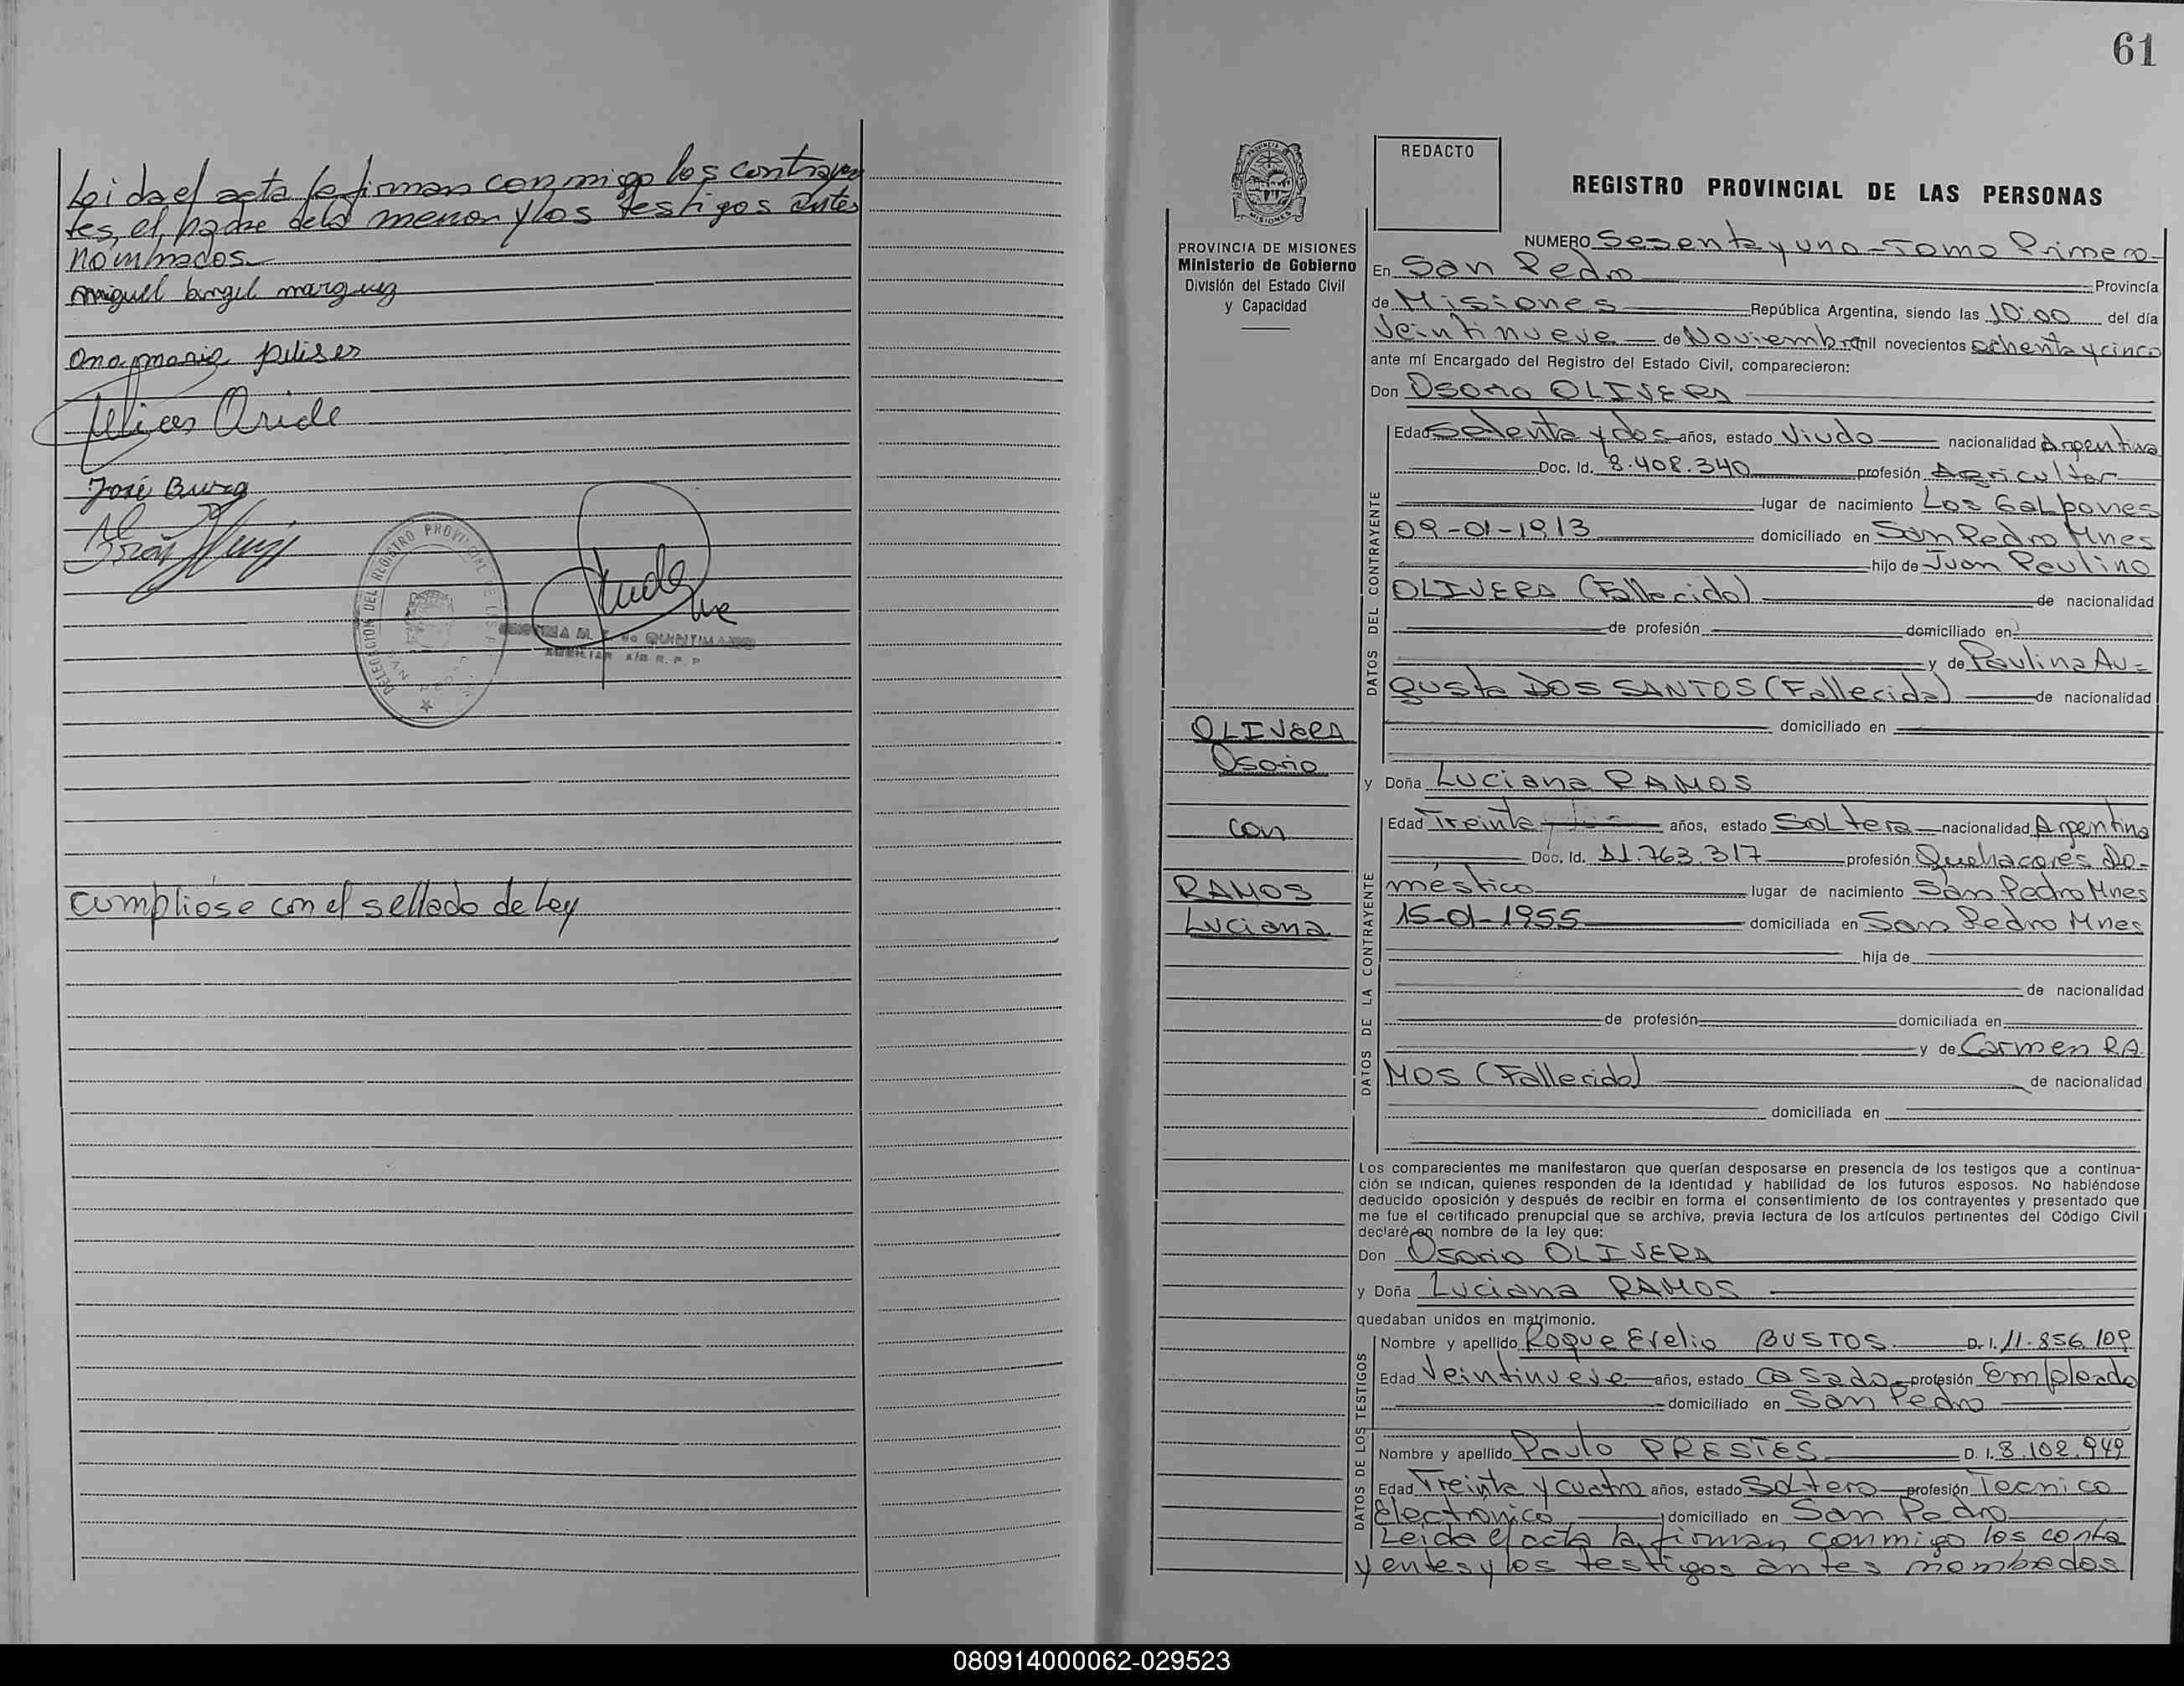 Leida el acta la firman conmigo los contrayen
tes, el padre dela menor y los testigos antes
nombrados
miguel angel marquez
ana maria
José Burg
DELEGACION DEL REGISTRO PROVINCIAL DE LAS P
AUXILIAR R. P. P
Cumpliose con el sellado de Ley
61
PROVINCIA DE MISIONES
Ministerio de Gobierno
División del Estado Civil
y Capacidad
OLIVERA
Osorio
con
RAMOS
Luciana
REDACTO
REGISTRO PROVINCIAL DE LAS PERSONAS
NUMERO Sesenta y uno - Tomo Primero
En San Pedro Provincia
de Misiones República Argentina, siendo las 10:00 del día
Veintinueve de Noviembre mil novecientos ochenta y cinco
ante mí Encargado del Registro del Estado Civil, comparecieron:
Don Osorio OLIVERA
DATOS DEL CONTRAYENTE
Edad Setenta y dos años, estado Viudo nacionalidad Argentina
Doc. Id. 8.408.340 profesión Agricultor
lugar de nacimiento Los Galpones
09-01-1913 domiciliado en San Pedro Mnes
hijo de Juan Paulino
OLIVERA (Fallecido) de nacionalidad
de profesión domiciliado en
y de Paulina Au=
gusta DOS SANTOS (Fallecida) de nacionalidad
domiciliado en
y Doña Luciana RAMOS
DATOS DE LA CONTRAYENTE
Edad Treinta años, estado Soltera nacionalidad Argentina
Doc. Id. 11.763.317 profesión Quehacores Do-
méstico lugar de nacimiento San Pedro Mnes
15-01-1955 domiciliada en San Pedro Mnes
hija de
de nacionalidad
de profesión domiciliada en
y de Carmen RA
MOS (Fallecida) de nacionalidad
domiciliada en
Los comparecientes me manifestaron que querían desposarse en presencia de los testigos que a continua-
ción se indican, quienes responden de la identidad y habilidad de los futuros esposos. No habiéndose
deducido oposición y después de recibir en forma el consentimiento de los contrayentes y presentado que
me fue el certificado prenupcial que se archiva, previa lectura de los artículos pertinentes del Código Civil
declaré en nombre de la ley que:
Don Osorio OLIVERA
y Doña Luciana RAMOS
quedaban unidos en matrimonio.
DATOS DE LOS TESTIGOS
Nombre y apellido Roque Evelio BUSTOS D. I. 11.856.109
Edad Veintinueve años, estado Casado profesión Empleado
domiciliado en San Pedro
Nombre y apellido Paulo PRESTES D. I. 8.102.949
Edad Treinta y cuatro años, estado Soltero profesión Tecnico
Electronico domiciliado en San Pedro
Leida el acta la firman conmigo los contra
yentes y los testigos antes nombrados
080914000062-029523